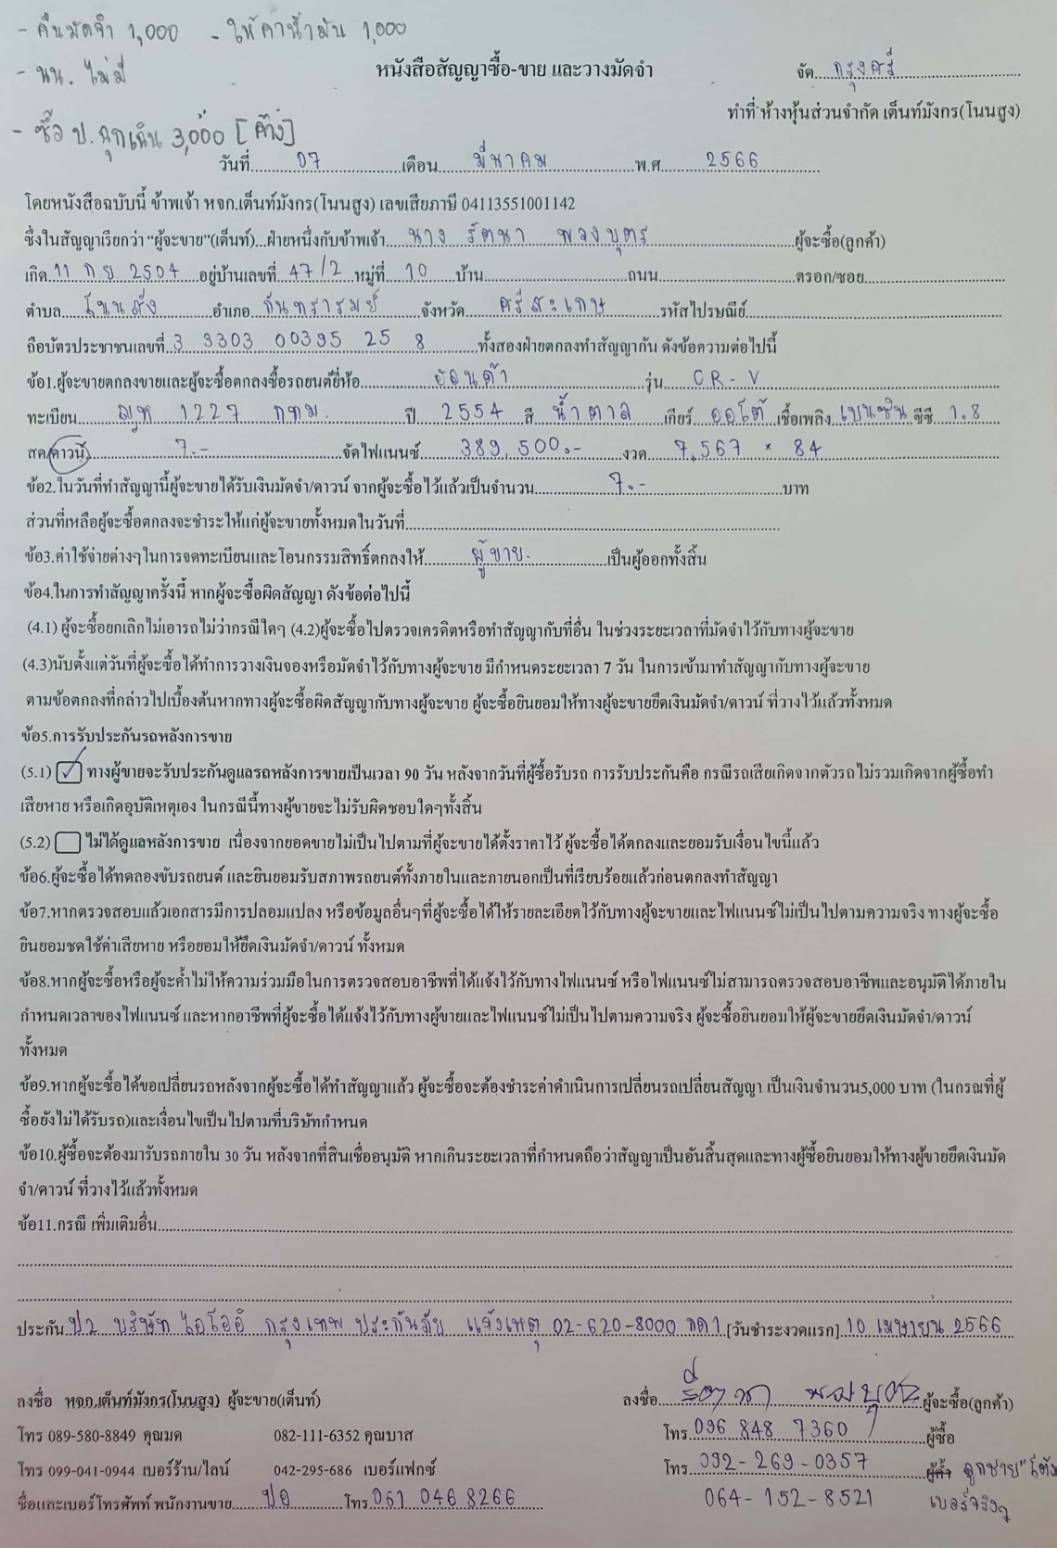 - คืนมัดจำ 1,000 - ให้ค่าน้ำมัน 1,000
- นน. ไม่มี
หนังสือสัญญาซื้อ-ขาย และวางมัดจำ
จัด กรุงศรี
ทำที่ ห้างหุ้นส่วนจำกัด เต็นท์มังกร(โนนสูง)
- ซื้อ ป. ฉุกเฉิน 3,000 [ค้าง]
วันที่ 07 เดือน มีนาคม พ.ศ. 2566
โดยหนังสือฉบับนี้ ข้าพเจ้า หจก.เต็นท์มังกร(โนนสูง) เลขเสียภาษี 04113551001142
ซึ่งในสัญญาเรียกว่า “ผู้จะขาย”(เต็นท์)...ฝ่ายหนึ่งกับข้าพเจ้า นาง รัตนา พวงบุตร ผู้จะซื้อ(ลูกค้า)
เกิด 11 ก.ย 2504 อยู่บ้านเลขที่ 47/2 หมู่ที่ 10 บ้าน ถนน ตรอก/ซอย
ตำบล โนนสัง อำเภอ กันทรารมย์ จังหวัด ศรีสะเกษ รหัสไปรษณีย์
ถือบัตรประชาชนเลขที่ 3 3303 00395 25 8 ทั้งสองฝ่ายตกลงทำสัญญากัน ดังข้อความต่อไปนี้
ข้อ1.ผู้จะขายตกลงขายและผู้จะซื้อตกลงซื้อรถยนต์ยี่ห้อ ฮอนด้า รุ่น CR-V
ทะเบียน ญห 1227 กทม. ปี 2554 สี น้ำตาล เกียร์ ออโต้ เชื้อเพลิง เบนซิน ซีซี 1.8
สด/ดาวน์ 7.- จัดไฟแนนซ์ 389,500.- งวด 7,567 × 84
ข้อ2.ในวันที่ทำสัญญานี้ผู้จะขายได้รับเงินมัดจำ/ดาวน์ จากผู้จะซื้อไว้แล้วเป็นจำนวน 7.- บาท
ส่วนที่เหลือผู้จะซื้อตกลงจะชำระให้แก่ผู้จะขายทั้งหมดในวันที่
ข้อ3.ค่าใช้จ่ายต่างๆในการจดทะเบียนและโอนกรรมสิทธิ์ตกลงให้ ผู้ขาย. เป็นผู้ออกทั้งสิ้น
ข้อ4.ในการทำสัญญาครั้งนี้ หากผู้จะซื้อผิดสัญญา ดังข้อต่อไปนี้
(4.1) ผู้จะซื้อยกเลิกไม่เอารถไม่ว่ากรณีใดๆ (4.2)ผู้จะซื้อไปตรวจเครดิตหรือทำสัญญากับที่อื่น ในช่วงระยะเวลาที่มัดจำไว้กับทางผู้จะขาย
(4.3)นับตั้งแต่วันที่ผู้จะซื้อได้ทำการวางเงินจองหรือมัดจำไว้กับทางผู้จะขาย มีกำหนดระยะเวลา 7 วัน ในการเข้ามาทำสัญญากับทางผู้จะขาย
ตามข้อตกลงที่กล่าวไปเบื้องต้นหากทางผู้จะซื้อผิดสัญญากับทางผู้จะขาย ผู้จะซื้อยินยอมให้ทางผู้จะขายยึดเงินมัดจำ/ดาวน์ ที่วางไว้แล้วทั้งหมด
ข้อ5.การรับประกันรถหลังการขาย
(5.1) ✓ ทางผู้ขายจะรับประกันดูแลรถหลังการขายเป็นเวลา 90 วัน หลังจากวันที่ผู้ซื้อรับรถ การรับประกันคือ กรณีรถเสียเกิดจากตัวรถ ไม่รวมเกิดจากผู้ซื้อทำ
เสียหาย หรือเกิดอุบัติเหตุเอง ในกรณีนี้ทางผู้ขายจะไม่รับผิดชอบใดๆทั้งสิ้น
(5.2) ไม่ได้ดูแลหลังการขาย เนื่องจากยอดขายไม่เป็นไปตามที่ผู้จะขายได้ตั้งราคาไว้ ผู้จะซื้อได้ตกลงและยอมรับเงื่อนไขนี้แล้ว
ข้อ6.ผู้จะซื้อได้ทดลองขับรถยนต์ และยินยอมรับสภาพรถยนต์ทั้งภายในและภายนอกเป็นที่เรียบร้อยแล้วก่อนตกลงทำสัญญา
ข้อ7.หากตรวจสอบแล้วเอกสารมีการปลอมแปลง หรือข้อมูลอื่นๆที่ผู้จะซื้อได้ให้รายละเอียดไว้กับทางผู้จะขายและไฟแนนซ์ไม่เป็นไปตามความจริง ทางผู้จะซื้อ
ยินยอมชดใช้ค่าเสียหาย หรือยอมให้ยึดเงินมัดจำ/ดาวน์ ทั้งหมด
ข้อ8.หากผู้จะซื้อหรือผู้จะค้ำไม่ให้ความร่วมมือในการตรวจสอบอาชีพที่ได้แจ้งไว้กับทางไฟแนนซ์ หรือไฟแนนซ์ไม่สามารถตรวจสอบอาชีพและอนุมัติได้ภายใน
กำหนดเวลาของไฟแนนซ์ และหากอาชีพที่ผู้จะซื้อได้แจ้งไว้กับทางผู้ขายและไฟแนนซ์ไม่เป็นไปตามความจริง ผู้จะซื้อยินยอมให้ผู้จะขายยึดเงินมัดจำ/ดาวน์
ทั้งหมด
ข้อ9.หากผู้จะซื้อได้ขอเปลี่ยนรถหลังจากผู้จะซื้อได้ทำสัญญาแล้ว ผู้จะซื้อจะต้องชำระค่าดำเนินการเปลี่ยนรถเปลี่ยนสัญญา เป็นเงินจำนวน5,000 บาท (ในกรณที่ผู้
ซื้อยังไม่ได้รับรถ)และเงื่อนไขเป็นไปตามที่บริษัทกำหนด
ข้อ10.ผู้ซื้อจะต้องมารับรถภายใน 30 วัน หลังจากที่สินเชื่ออนุมัติ หากเกินระยะเวลาที่กำหนดถือว่าสัญญาเป็นอันสิ้นสุดและทางผู้ซื้อยินยอมให้ทางผู้ขายยึดเงินมัด
จำ/ดาวน์ ที่วางไว้แล้วทั้งหมด
ข้อ11.กรณี เพิ่มเติมอื่น
ประกัน ป2 บริษัท ไอโออิ กรุงเทพ ประกันภัย แจ้งเหตุ 02-620-8000 กด1 [วันชำระงวดแรก] 10 เมษายน 2566
ลงชื่อ หจก.เต็นท์มังกร(โนนสูง) ผู้จะขาย(เต็นท์) ลงชื่อ รัตนา พวงบุตร ผู้จะซื้อ(ลูกค้า)
โทร 089-580-8849 คุณมด 082-111-6352 คุณบาส โทร 096 848 7360 ผู้ซื้อ
โทร 099-041-0944 เบอร์ร้าน/ไลน์ 042-295-686 เบอร์แฟกซ์ โทร 092-269-0357 ผู้ค้ำ ลูกชาย"โต้ง
ชื่อและเบอร์โทรศัพท์ พนักงานขาย ปอ โทร 061 046 8266 064-152-8521 เบอร์จริงๆ